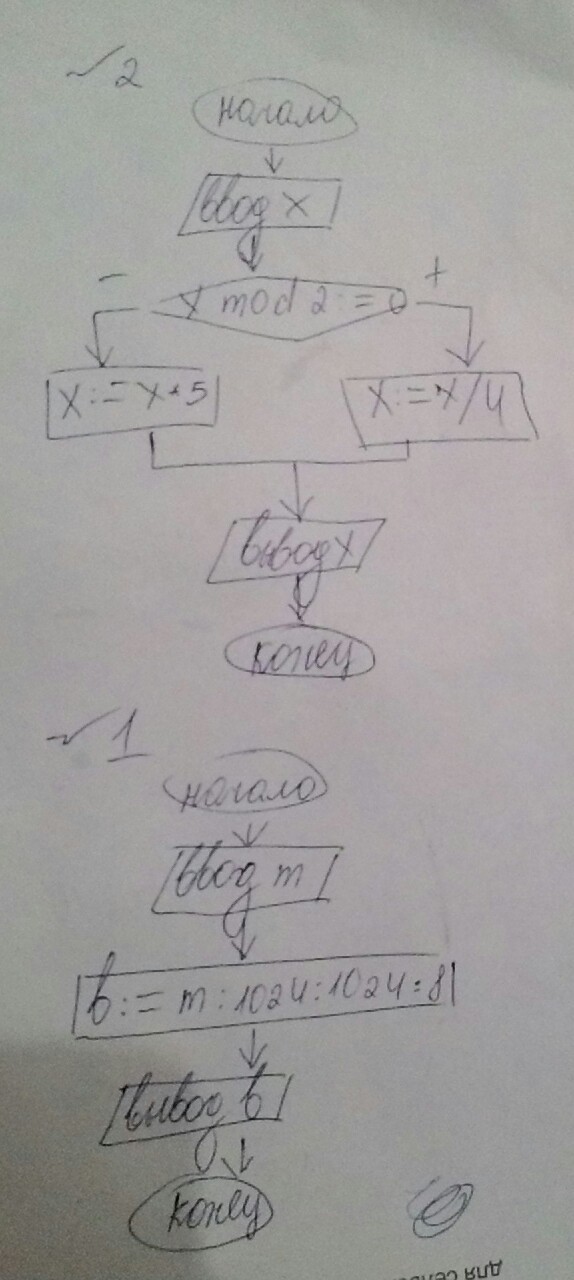 √2
начало
ввод x
- +
x mod 2 := 0
x := x*5 x := x/4
вывод x
конец
√1
начало
ввод m
b := m : 1024 : 1024 : 8
вывод b
конец